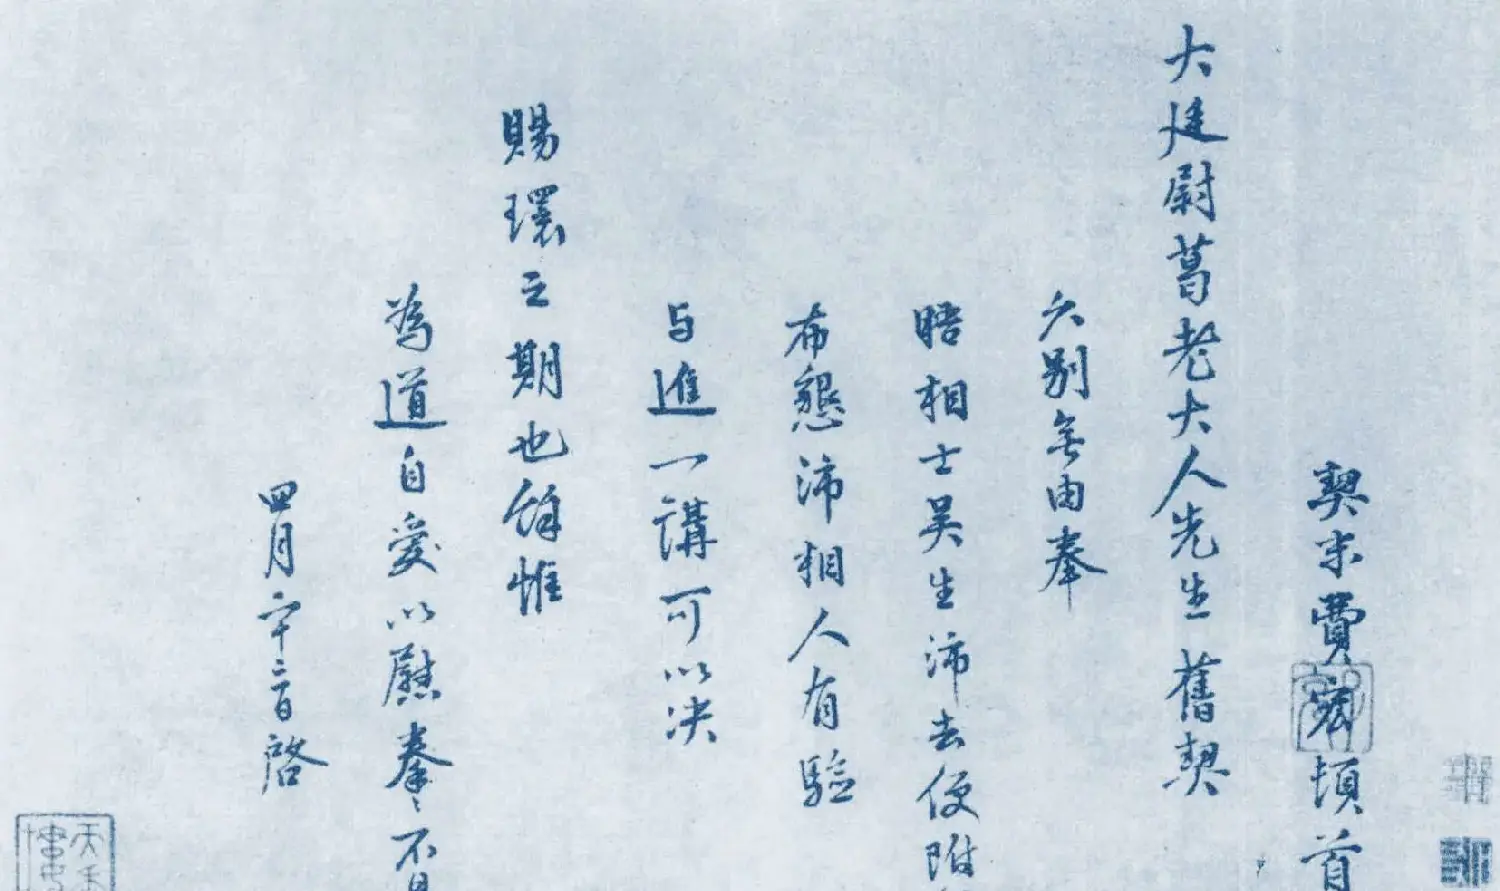 契末費宏頓首
大廷尉葛老大人先生舊契
久別無由奉
晤相士吴生沛去便附
布懇沛相人有驗
与進一講可以决
賜環之期也餘惟
為道自愛以慰拳〻不
四月二十二日啓